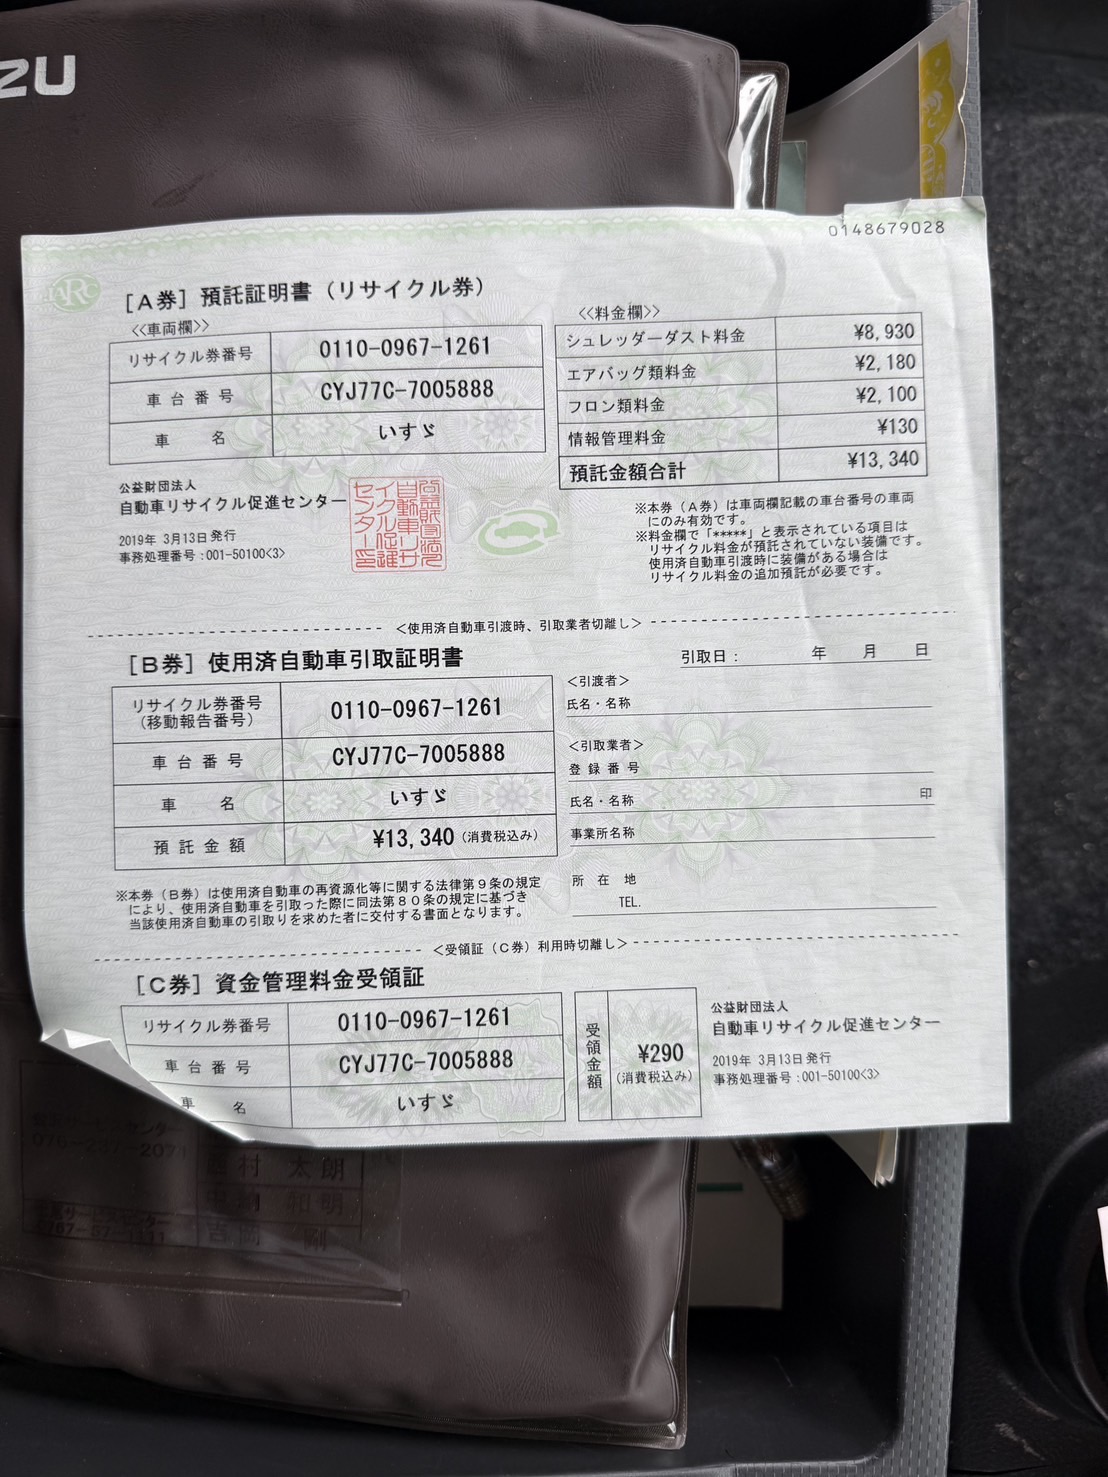 ZU
0148679028
ARC
[A券] 預託証明書（リサイクル券）
<<車両欄>>
リサイクル券番号 0110-0967-1261
車台番号 CYJ77C-7005888
車名 いすゞ
<<料金欄>>
シュレッダーダスト料金 ¥8,930
エアバッグ類料金 ¥2,180
フロン類料金 ¥2,100
情報管理料金 ¥130
預託金額合計 ¥13,340
公益財団法人
自動車リサイクル促進センター
2019年 3月13日発行
事務処理番号:001-50100<3>
公益財団法人自動車リサイクル促進センター印
※本券（A券）は車両欄記載の車台番号の車両
にのみ有効です。
※料金欄で「*****」と表示されている項目は
リサイクル料金が預託されていない装備です。
使用済自動車引渡時に装備がある場合は
リサイクル料金の追加預託が必要です。
<使用済自動車引渡時、引取業者切離し>
[B券] 使用済自動車引取証明書
引取日: 年 月 日
リサイクル券番号
（移動報告番号） 0110-0967-1261
車台番号 CYJ77C-7005888
車名 いすゞ
預託金額 ¥13,340（消費税込み）
<引渡者>
氏名・名称
<引取業者>
登録番号
氏名・名称 印
事業所名称
所在地
TEL.
※本券（B券）は使用済自動車の再資源化等に関する法律第９条の規定
により、使用済自動車を引取った際に同法第８０条の規定に基づき
当該使用済自動車の引取りを求めた者に交付する書面となります。
<受領証（C券）利用時切離し>
[C券] 資金管理料金受領証
リサイクル券番号 0110-0967-1261
車台番号 CYJ77C-7005888
車名 いすゞ
受領金額 ¥290
（消費税込み）
公益財団法人
自動車リサイクル促進センター
2019年 3月13日発行
事務処理番号:001-50100<3>
村 太朗
和明
吉岡 剛